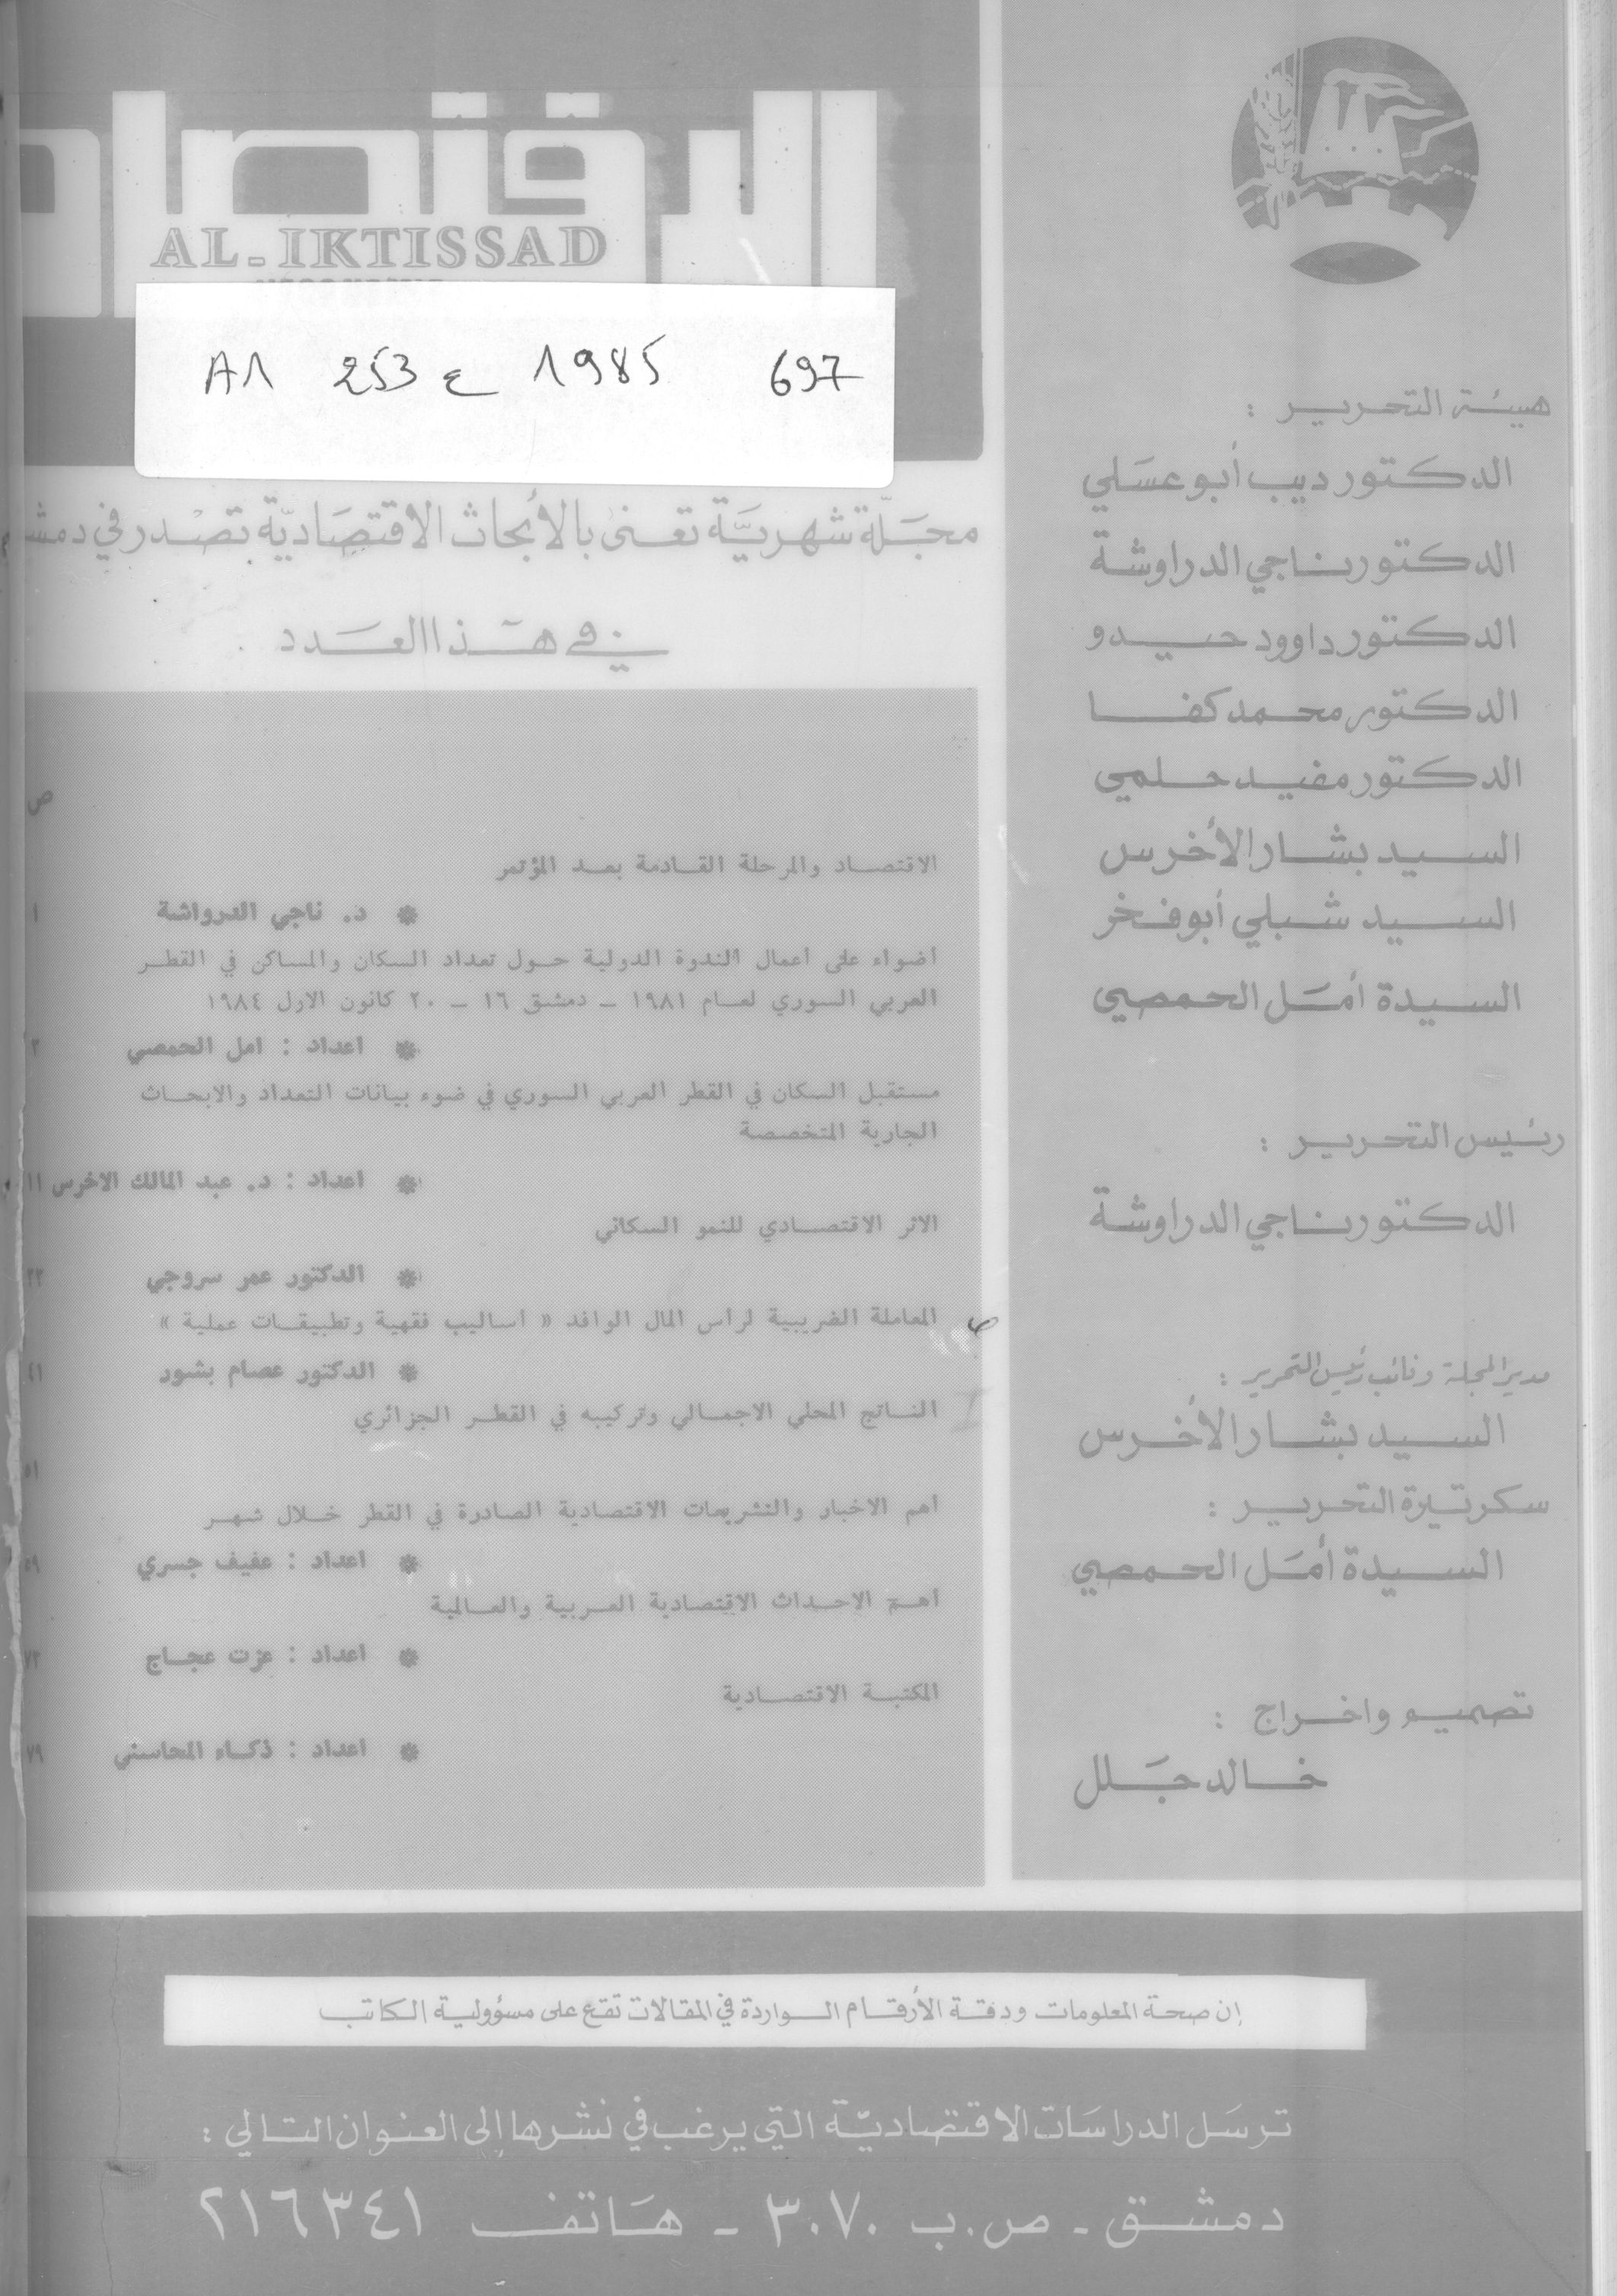 الاقتصاد
AL-IKTISSAD
A1 253 ع 1985 697
مجلة شهرية تعنى بالأبحاث الاقتصادية تصدر في دمشـ
في هذا العدد
ص
الاقتصاد والمرحلة القادمة بعد المؤتمر
* د. ناجي الدرواشة ١
أضواء على أعمال الندوة الدولية حول تعداد السكان والمساكن في القطر
العربي السوري لعام ١٩٨١ - دمشق ١٦ - ٢٠ كانون الاول ١٩٨٤
* اعداد : امل الحمصي ٢
مستقبل السكان في القطر العربي السوري في ضوء بيانات التعداد والابحاث
الجارية المتخصصة
* اعداد : د. عبد المالك الاخرس ١١
الاثر الاقتصادي للنمو السكاني
* الدكتور عمر سروجي ٢٢
المعاملة الضريبية لرأس المال الوافد « أساليب فقهية وتطبيقات عملية »
* الدكتور عصام بشور ٤١
الناتج المحلي الاجمالي وتركيبه في القطر الجزائري
٥١
أهم الاخبار والتشريعات الاقتصادية الصادرة في القطر خلال شهر
* اعداد : عفيف جسري ٥٩
أهم الاحداث الاقتصادية العربية والعالمية
* اعداد : عزت عجاج ٧٢
المكتبة الاقتصادية
* اعداد : ذكاء المحاسني ٧٩
هيئة التحرير :
الدكتور ديب أبو عسلي
الدكتور ناجي الدراوشة
الدكتور داوود حيدو
الدكتور محمد كفا
الدكتور مفيد حلمي
السيد بشار الأخرس
السيد شبلي أبو فخر
السيدة أمل الحمصي
رئيس التحرير :
الدكتور ناجي الدراوشة
مدير المجلة ونائب رئيس التحرير :
السيد بشار الأخرس
سكرتيرة التحرير :
السيدة أمل الحمصي
تصميم واخراج :
خالد جلل
إن صحة المعلومات ودقة الأرقام الواردة في المقالات تقع على مسؤولية الكاتب
ترسل الدراسات الاقتصادية التي يرغب في نشرها إلى العنوان التالي :
دمشق - ص.ب ٣٠٧٠ - هاتف ٢١٦٣٤١